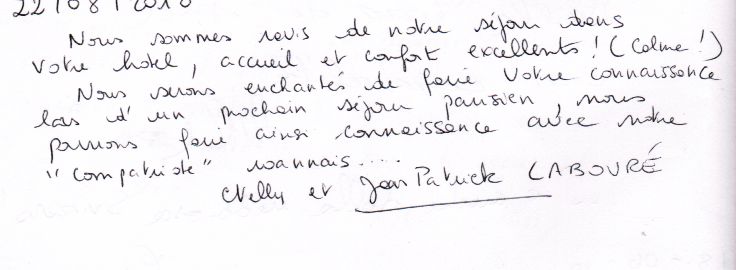 22/08/2010
Nous sommes ravis de notre séjour dans
votre hôtel, accueil et confort excellents! (Calme!)
Nous serons enchantés de faire votre connaissance
lors d'un prochain séjour parisien, nous
pourrons faire ainsi connaissance avec notre
"compatriote" roannais....
Nelly et Jean Patrick LABOURÉ